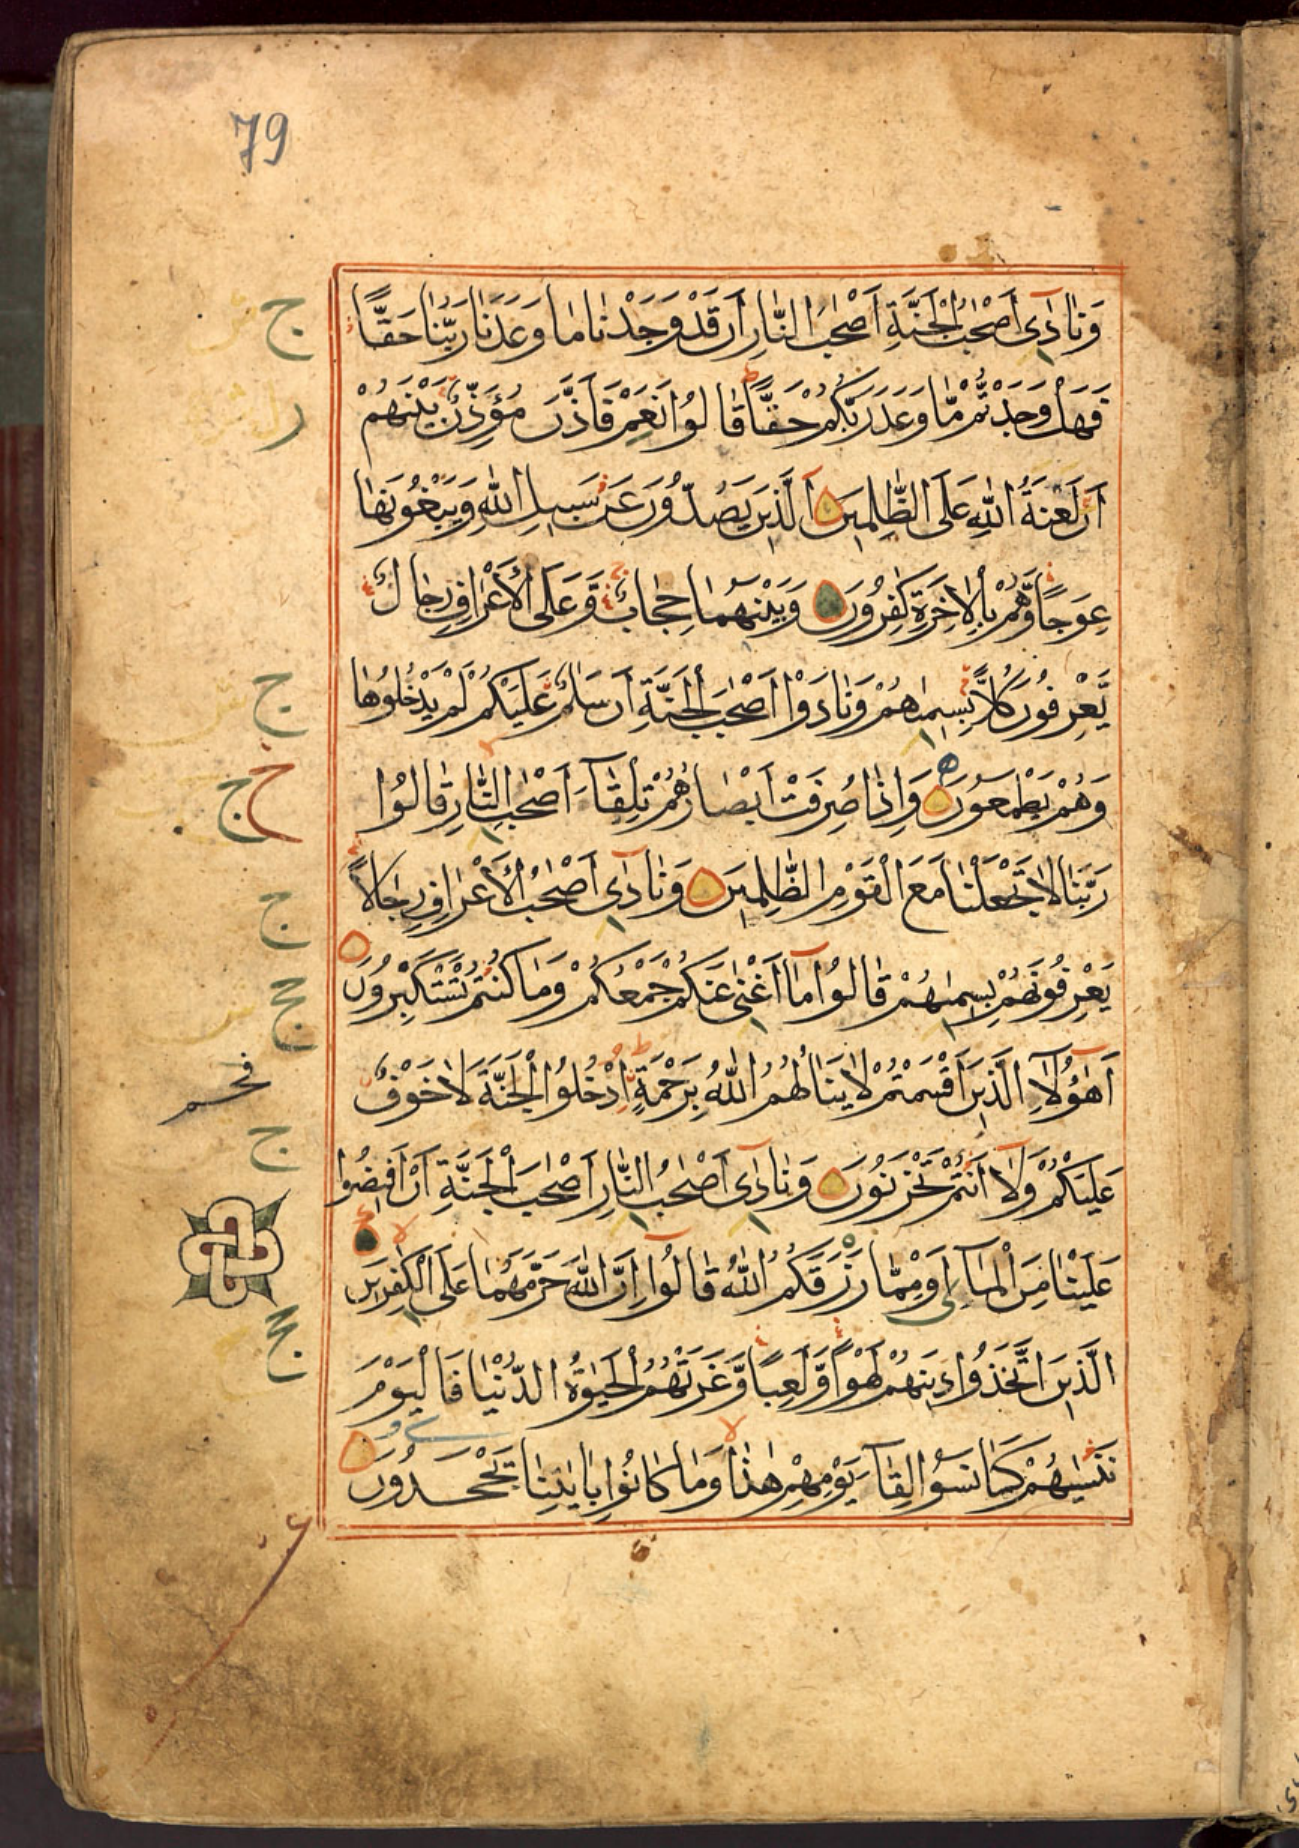 79
وَنَادٰٓى اَصْحٰبُ الْجَنَّةِ اَصْحٰبَ النَّارِ اَنْ قَدْ وَجَدْنَا مَا وَعَدَنَا رَبُّنَا حَقًّا
فَهَلْ وَجَدْتُّمْ مَّا وَعَدَ رَبُّكُمْ حَقًّا قَالُوْا نَعَمْ فَاَذَّنَ مُؤَذِّنٌ بَيْنَهُمْ
اَنْ لَعْنَةُ اللّٰهِ عَلَى الظّٰلِمِيْنَ اَلَّذِيْنَ يَصُدُّوْنَ عَنْ سَبِيْلِ اللّٰهِ وَيَبْغُوْنَهَا
عِوَجًا وَّهُمْ بِالْاٰخِرَةِ كٰفِرُوْنَ وَبَيْنَهُمَا حِجَابٌ وَعَلَى الْاَعْرَافِ رِجَالٌ
يَّعْرِفُوْنَ كُلًّا بِسِيْمٰهُمْ وَنَادَوْا اَصْحٰبَ الْجَنَّةِ اَنْ سَلٰمٌ عَلَيْكُمْ لَمْ يَدْخُلُوْهَا
وَهُمْ يَطْمَعُوْنَ وَاِذَا صُرِفَتْ اَبْصَارُهُمْ تِلْقَآءَ اَصْحٰبِ النَّارِ قَالُوْا
رَبَّنَا لَا تَجْعَلْنَا مَعَ الْقَوْمِ الظّٰلِمِيْنَ وَنَادٰٓى اَصْحٰبُ الْاَعْرَافِ رِجَالًا
يَعْرِفُوْنَهُمْ بِسِيْمٰهُمْ قَالُوْا مَآ اَغْنٰى عَنْكُمْ جَمْعُكُمْ وَمَا كُنْتُمْ تَسْتَكْبِرُوْنَ
اَهٰٓؤُلَآءِ الَّذِيْنَ اَقْسَمْتُمْ لَا يَنَالُهُمُ اللّٰهُ بِرَحْمَةٍ اُدْخُلُوا الْجَنَّةَ لَا خَوْفٌ
عَلَيْكُمْ وَلَآ اَنْتُمْ تَحْزَنُوْنَ وَنَادٰٓى اَصْحٰبُ النَّارِ اَصْحٰبَ الْجَنَّةِ اَنْ اَفِيْضُوْا
عَلَيْنَا مِنَ الْمَآءِ اَوْ مِمَّا رَزَقَكُمُ اللّٰهُ قَالُوْٓا اِنَّ اللّٰهَ حَرَّمَهُمَا عَلَى الْكٰفِرِيْنَ
الَّذِيْنَ اتَّخَذُوْا دِيْنَهُمْ لَهْوًا وَّلَعِبًا وَّغَرَّتْهُمُ الْحَيٰوةُ الدُّنْيَا فَالْيَوْمَ
نَنْسٰيهُمْ كَمَا نَسُوْا لِقَآءَ يَوْمِهِمْ هٰذَا وَمَا كَانُوْا بِاٰيٰتِنَا يَجْحَدُوْنَ